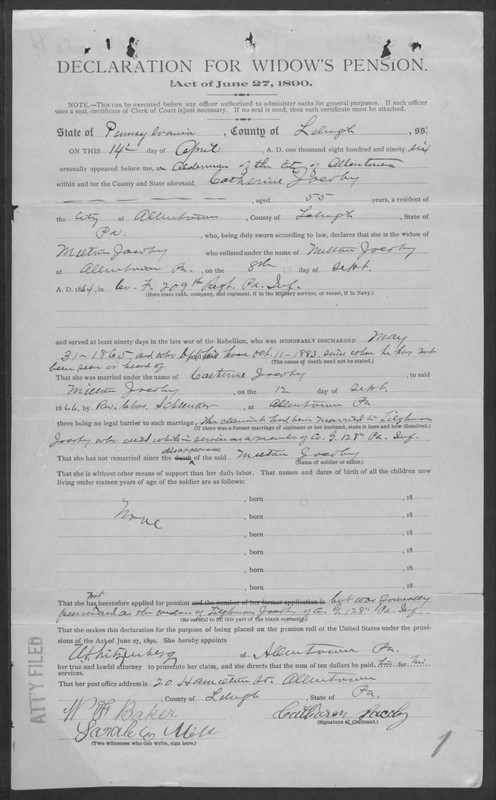 DECLARATION FOR WIDOW'S PENSION.
Act of June 27, 1890.
NOTE.—This can be executed before any officer authorized to administer oaths for general purposes. If such officer
uses a seal, certificate of Clerk of Court is not necessary. If no seal is used, then such certificate must be attached.
State of Pennsylvania, County of Lehigh, SS:
ON THIS 14th day of April, A. D. one thousand eight hundred and ninety six
personally appeared before me, an Alderman of the City of Allentown
within and for the County and State aforesaid, Catherine Jacoby
, aged 55 years, a resident of
the City of Allentown, County of Lehigh, State of
Pa., who, being duly sworn according to law, declares that she is the widow of
Milton Jacoby who enlisted under the name of Milton Jacoby
at Allentown Pa., on the 8th day of Sept.
A. D. 1864, in Co. F. 209th Regt. Pa. Inf.
(Here state rank, company, and regiment, if in the Military service; or vessel, if in Navy.)
and served at least ninety days in the late war of the Rebellion, who was HONORABLY DISCHARGED May
31-1865, and who left his home Oct. 11-1883, since when he has not
(The cause of death need not be stated.)
been seen or heard of
That she was married under the name of Catherine Jacoby, to said
Milton Jacoby, on the 12 day of Sept.
1866, by Rev. Chas. Schlender, at Allentown Pa.
there being no legal barrier to such marriage, The claimant had been married to Tilghman
(If there was a former marriage of claimant or her husband, state it here and how dissolved.)
Jacoby who died while in service as a member of Co. G. 128th Pa. Inf.
disappearance
That she has not remarried since the death of the said Milton Jacoby
(Name of soldier or sailor.)
That she is without other means of support than her daily labor. That names and dates of birth of all the children now
living under sixteen years of age of the soldier are as follows:
, born , 18
None , born , 18
, born , 18
, born , 18
, born , 18
, born , 18
not
That she has heretofore applied for pension and the number of her former application is but was formerly
pensioned as the widow of Tilghman Jacoby of Co. G. 128th Pa. Inf.
(Be careful to fill this part of the blank correctly.)
That she makes this declaration for the purpose of being placed on the pension roll of the United States under the provi-
sions of the Act of June 27, 1890. She hereby appoints
of Allentown Pa.
her true and lawful attorney to prosecute her claim, and she directs that the sum of ten dollars be paid him for his
services.
That her post office address is 20 Hamilton St. Allentown
, County of Lehigh, State of Pa.
W F Baker
Catharon Jacoby
(Signature of Claimant.)
Sarah
(Two witnesses who can write, sign here.)
ATTY FILED
1